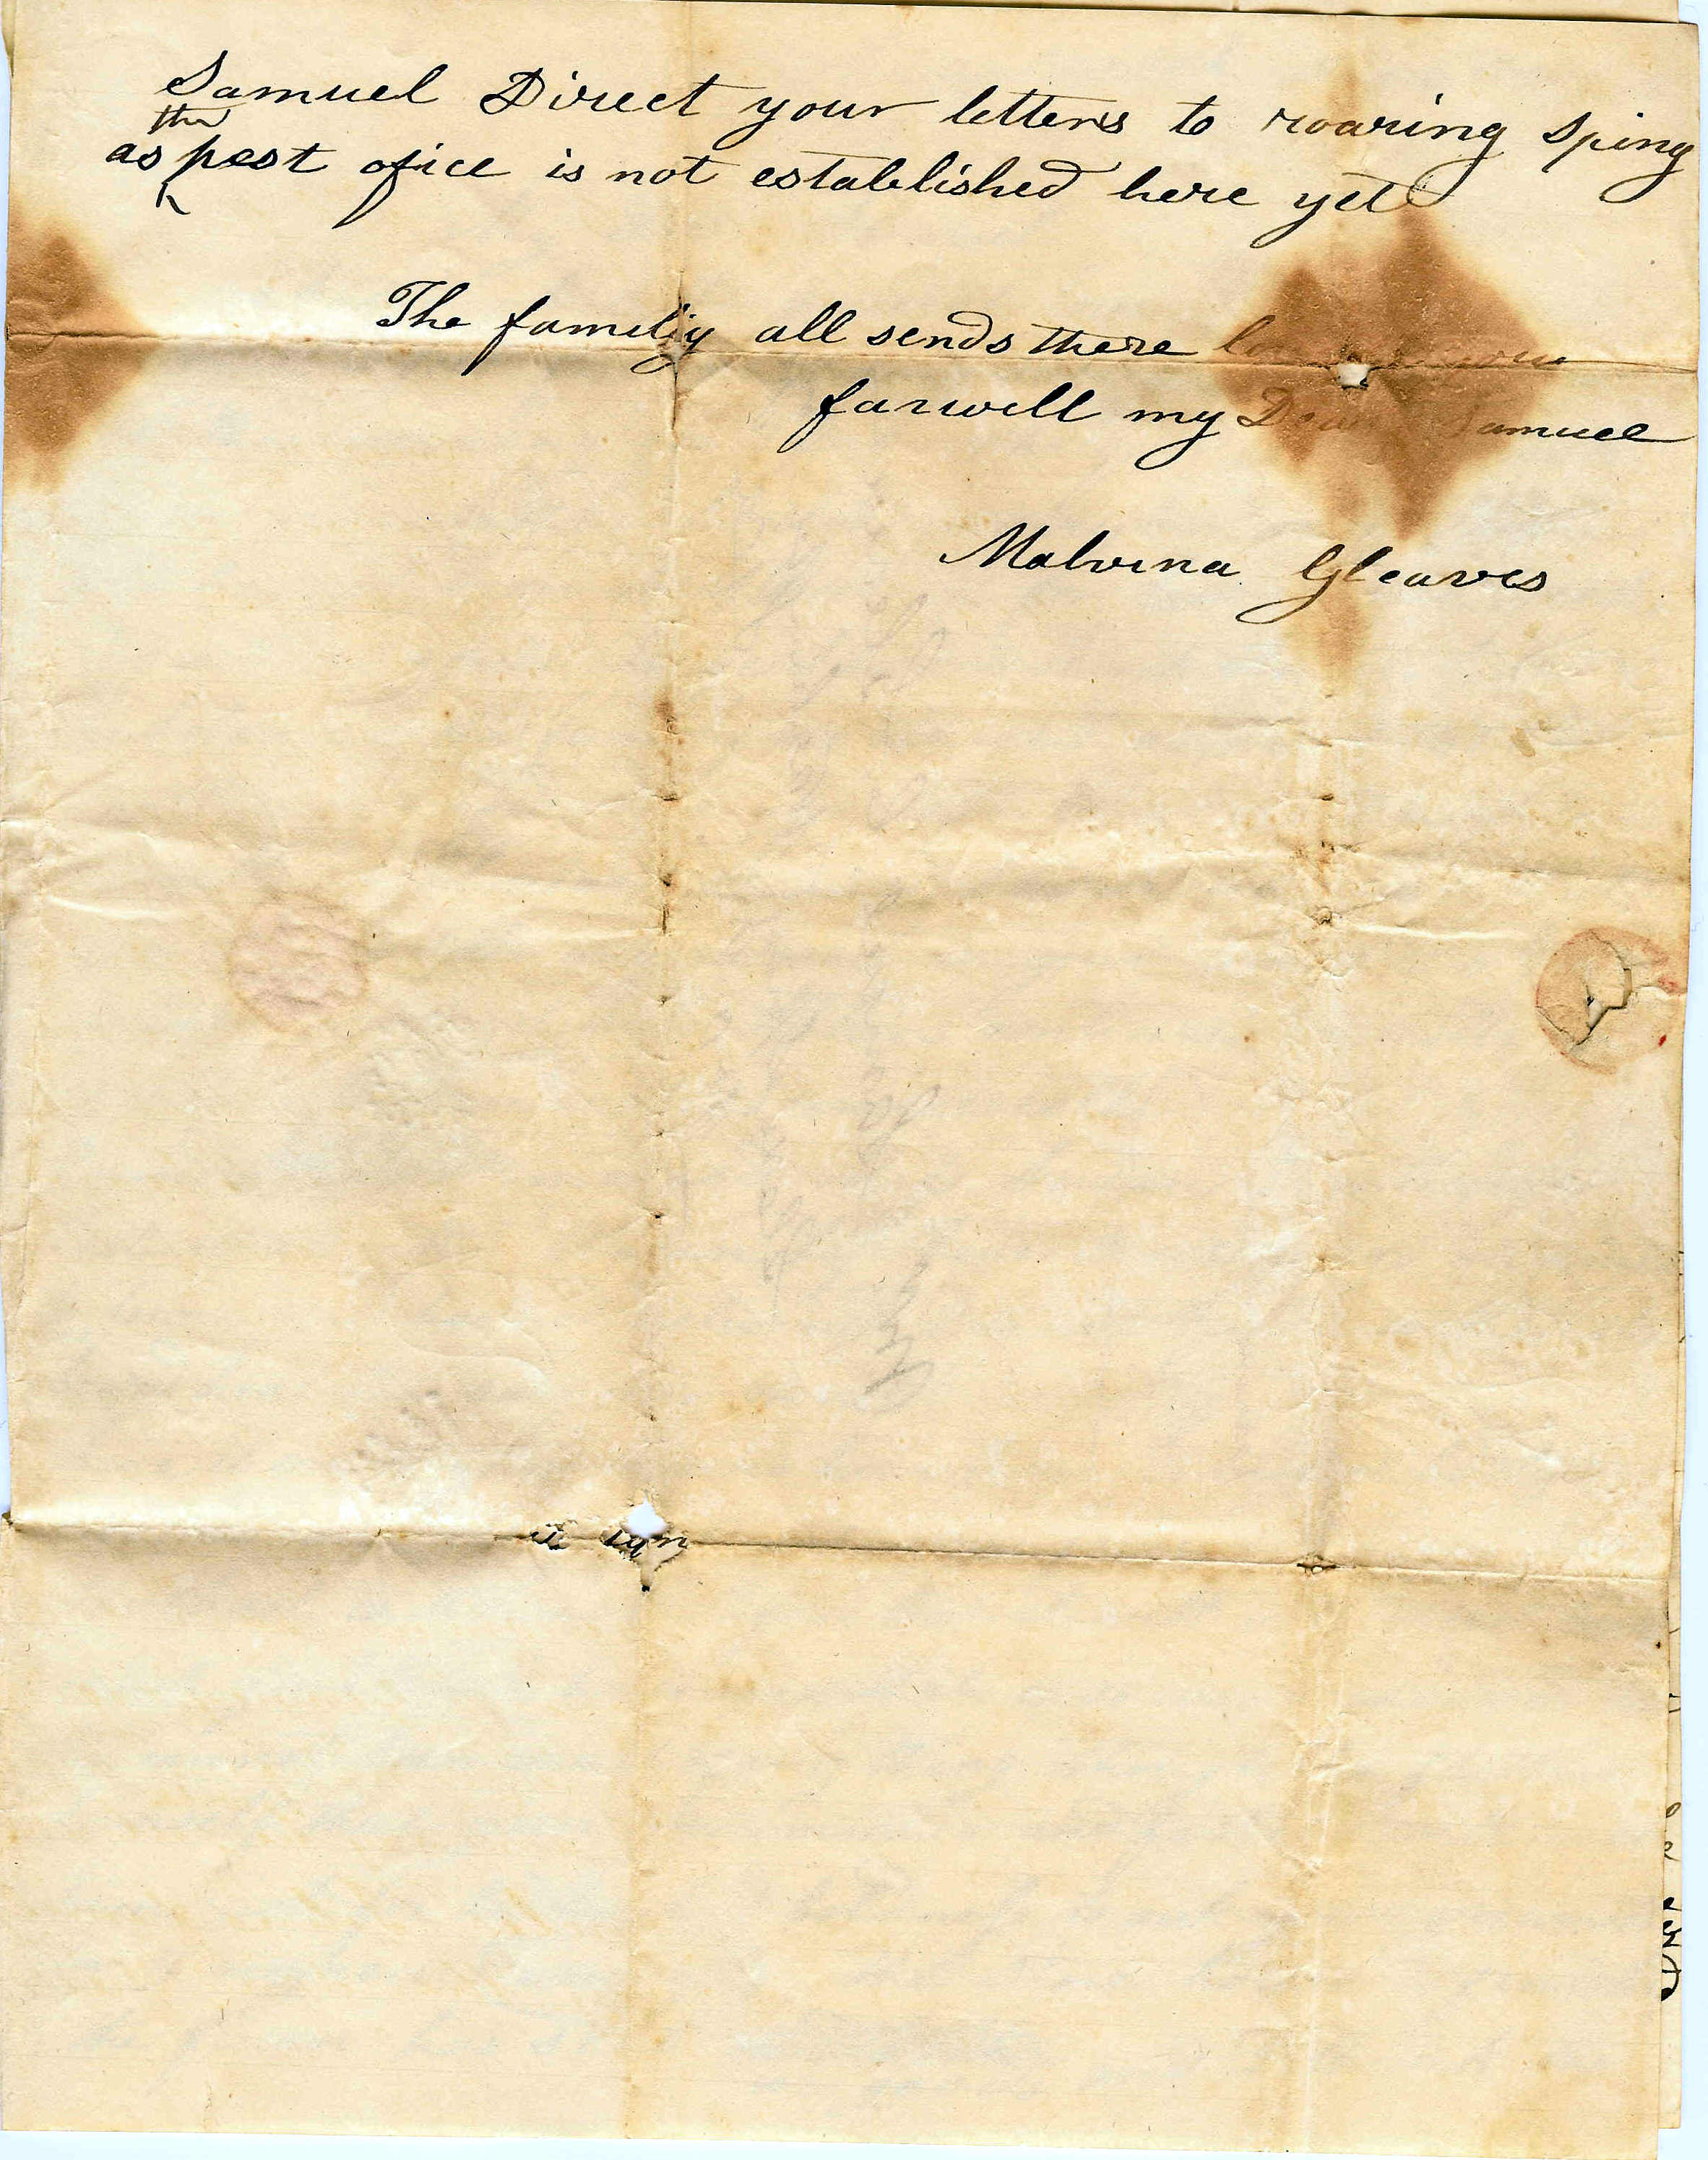 Samuel Direct your letters to roaring Sping
the
as post ofice is not established here yet
The familiy all sends there
farwell my Dear Samuel
Malvina Gleaves